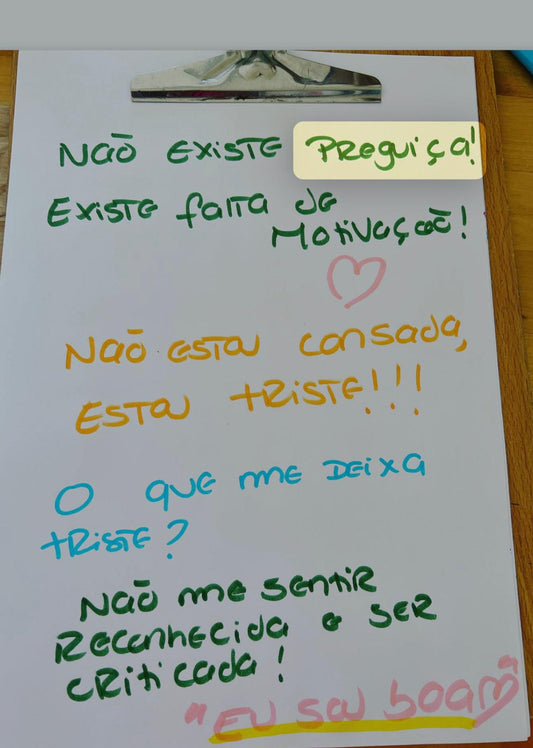 NÃO EXISTE PREGUIÇA!
EXISTE FALTA DE
MOTIVAÇÃO!
NÃO ESTOU CANSADA,
ESTOU TRISTE!!!
O QUE ME DEIXA
TRISTE?
NÃO ME SENTIR
RECONHECIDA E SER
CRITICADA!
"EU SOU BOA"